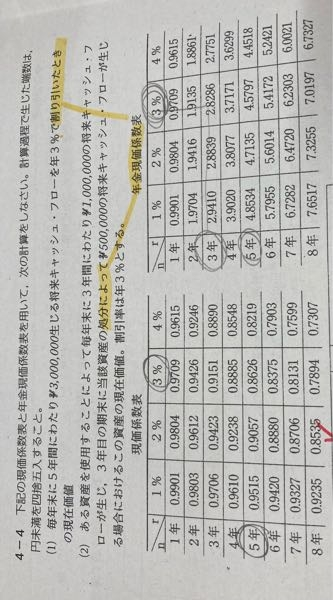 4－4　下記の現価係数表と年金現価係数表を用いて，次の計算をしなさい。計算過程で生じた端数は，
円未満を四捨五入すること。
(1)　毎年末に5年間にわたり¥3,000,000生じる将来キャッシュ・フローを年3％で割り引いたとき
の現在価値
(2)　ある資産を使用することによって毎年末に3年間にわたり¥1,000,000の将来キャッシュ・フ
ローが生じ，3年目の期末に当該資産の処分によって¥500,000の将来キャッシュ・フローが生じ
る場合におけるこの資産の現在価値。割引率は年3％とする。
現価係数表
n r 1％ 2％ 3％ 4％
1年 0.9901 0.9804 0.9709 0.9615
2年 0.9803 0.9612 0.9426 0.9246
3年 0.9706 0.9423 0.9151 0.8890
4年 0.9610 0.9238 0.8885 0.8548
5年 0.9515 0.9057 0.8626 0.8219
6年 0.9420 0.8880 0.8375 0.7903
7年 0.9327 0.8706 0.8131 0.7599
8年 0.9235 0.8535 0.7894 0.7307
年金現価係数表
n r 1％ 2％ 3％ 4％
1年 0.9901 0.9804 0.9709 0.9615
2年 1.9704 1.9416 1.9135 1.8861
3年 2.9410 2.8839 2.8286 2.7751
4年 3.9020 3.8077 3.7171 3.6299
5年 4.8534 4.7135 4.5797 4.4518
6年 5.7955 5.6014 5.4172 5.2421
7年 6.7282 6.4720 6.2303 6.0021
8年 7.6517 7.3255 7.0197 6.7327